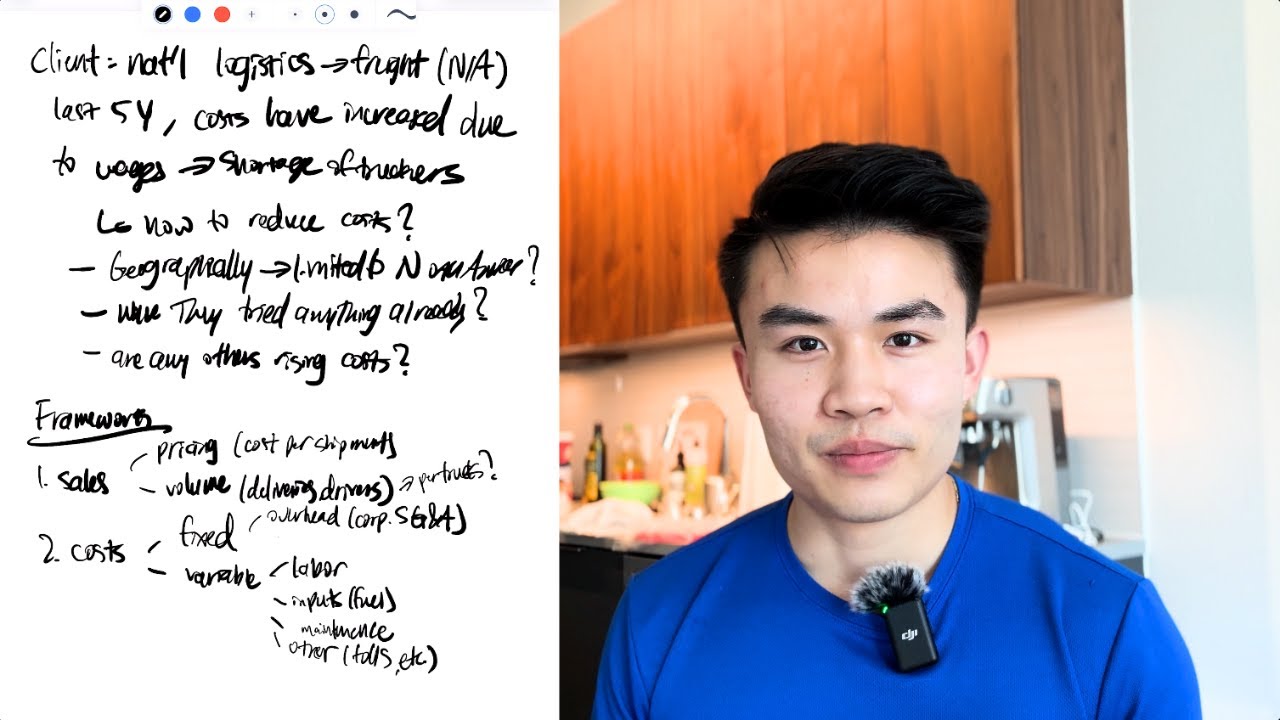 Client = nat'l logistics → fright (N/A)
last 5Y, costs have increased due
to wages → shortage of truckers
↳ how to reduce costs?
- Geographically → limited to N America?
- have they tried anything already?
- are any others rising costs?
Framework
1. sales - pricing (cost per shipment)
- volume (deliveries, drivers) → per trucks?
2. costs - fixed - overhead (corp. SG&A)
- variable - labor
- inputs (fuel)
- maintenence
- other (tolls, etc.)
dji